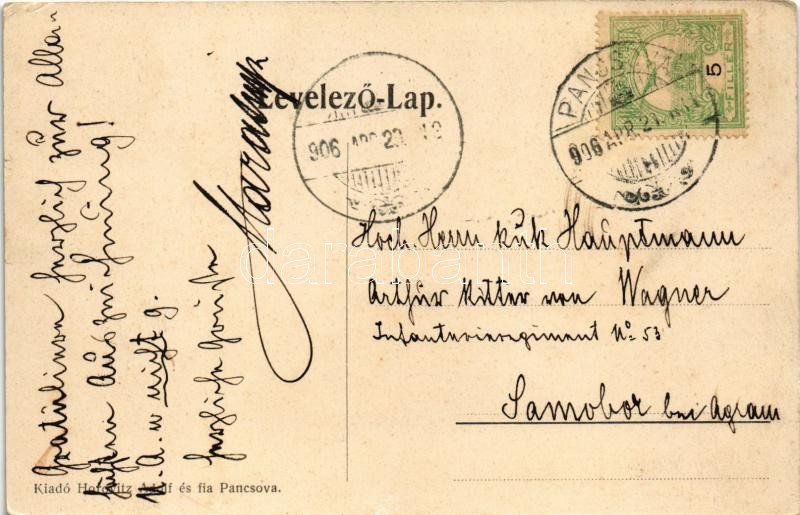 Levelező-Lap.
5
FILLÉR
PANCSOVA
906 APR. 2
906 APR 2
Hoch. Herrn kuk Hauptmann
Arthur Ritter von Wagner
Infanterieregiment No. 53
Samobor bei Agram
Gratulieren herzlich zur Aller-
höchsten Auszeichnung!
herzliche Grüße
Kiadó Horovitz Adolf és fia Pancsova.
darabanth